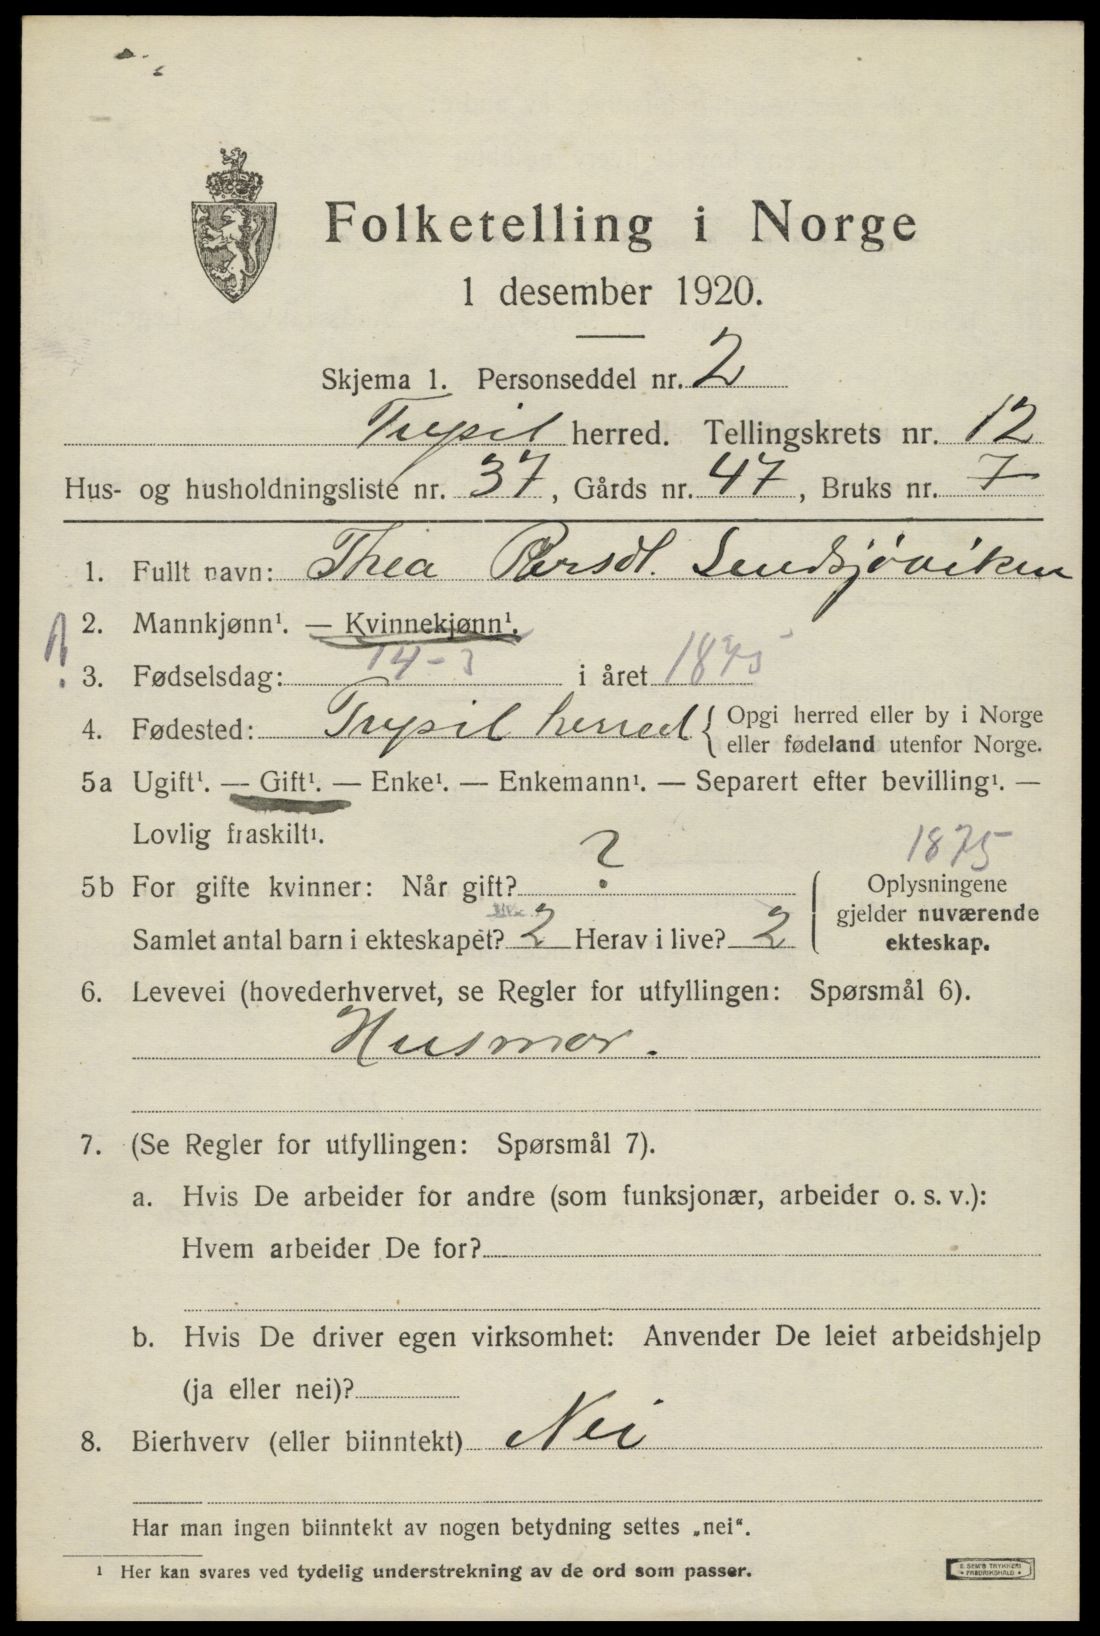 Folketelling i Norge
1 desember 1920.
Skjema 1. Personseddel nr. 2
Trysil herred. Tellingskrets nr. 12
Hus- og husholdningsliste nr. 37, Gårds nr. 47, Bruks nr. 7
1. Fullt navn: Thea Persdt. Lundsjøviken
2. Mannkjønn¹. — Kvinnekjønn¹.
3. Fødselsdag: 14-3 i året 1875
4. Fødested: Trysil herred { Opgi herred eller by i Norge
eller fødeland utenfor Norge.
5a Ugift¹. — Gift¹. — Enke¹. — Enkemann¹. — Separert efter bevilling¹. —
Lovlig fraskilt¹.
1875
5b For gifte kvinner: Når gift? ?
Samlet antal barn i ekteskapet? 2 Herav i live? 2
Oplysningene
gjelder nuværende
ekteskap.
6. Levevei (hovederhvervet, se Regler for utfyllingen: Spørsmål 6).
Husmor.
7. (Se Regler for utfyllingen: Spørsmål 7).
a. Hvis De arbeider for andre (som funksjonær, arbeider o. s. v.):
Hvem arbeider De for?
b. Hvis De driver egen virksomhet: Anvender De leiet arbeidshjelp
(ja eller nei)?
8. Bierhverv (eller biinntekt) Nei
Har man ingen biinntekt av nogen betydning settes „nei“.
¹ Her kan svares ved tydelig understrekning av de ord som passer.
E. SEM'S TRYKKERI
FREDRIKSHALD